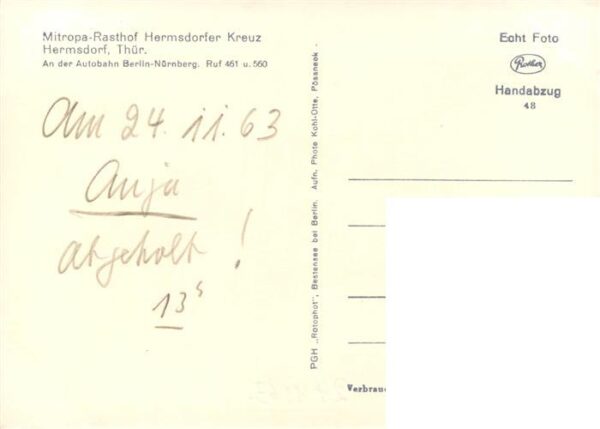 Mitropa-Rasthof Hermsdorfer Kreuz
Hermsdorf, Thür.
An der Autobahn Berlin-Nürnberg. Ruf 461 u. 560
Am 24. 11. 63
Anja
abgeholt !
13⁵
PGH „Rotophot“, Bestensee bei Berlin. Aufn. Photo Kohl-Otte, Pössneck
Echt Foto
Handabzug
48
Verbrauc